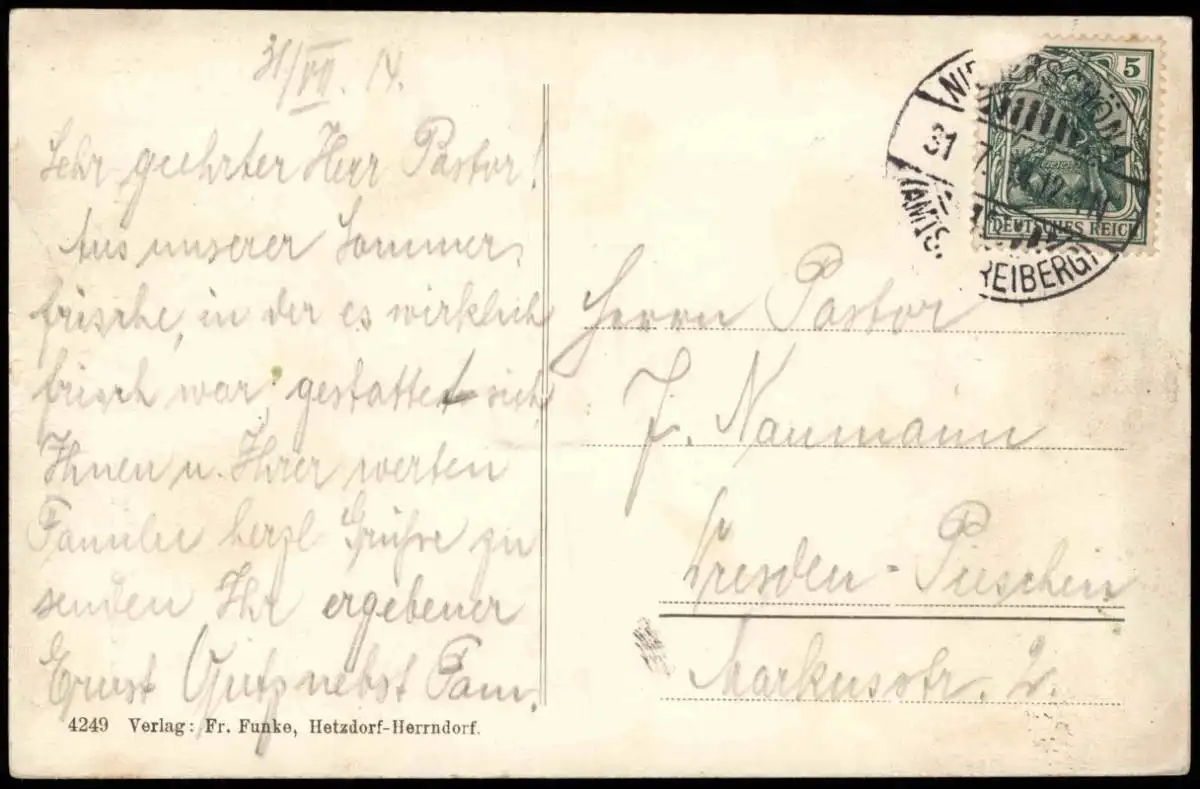 31/VII. 14.
Sehr geehrter Herr Pastor!
Aus unserer Sommer
frische, in der es wirklich
frisch war, gestattet sich
Ihnen u. Ihrer werten
Familie herzl Grüsse zu
senden Ihr ergebener
Ernst nebst Fam.
4249 Verlag: Fr. Funke, Hetzdorf-Herrndorf.
5
DEUTSCHES REICH
NIEDERSCHÖNA
31 7
(AMTSH. FREIBERG)
Herrn Pastor
J. Naumann
Dresden-Pieschen
Markusstr. 2.